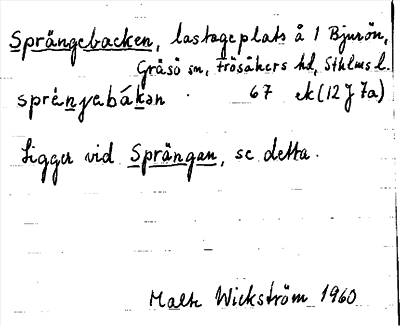 Sprängebacken, lastageplats å 1 Bjurön,
Gräsö sn, Frösåkers hd, Sthlms l.
67 ek (12 J 7a)
Ligger vid Sprängan, se detta.
Malte Wickström 1960